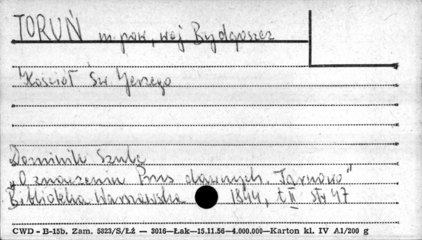 TORUŃ m. pow, woj Bydgoszcz
Kościół Św Jerzego
Dominik Szulc
"O znaczeniu Prus dawnych. Tarnowo"
Biblioteka Warszawska 1844, t. II str 47
CWD - B-15b. Zam. 5823/S/Łż — 3016—Łak—15.11.56—4.000.000—Karton kl. IV A1/200 g